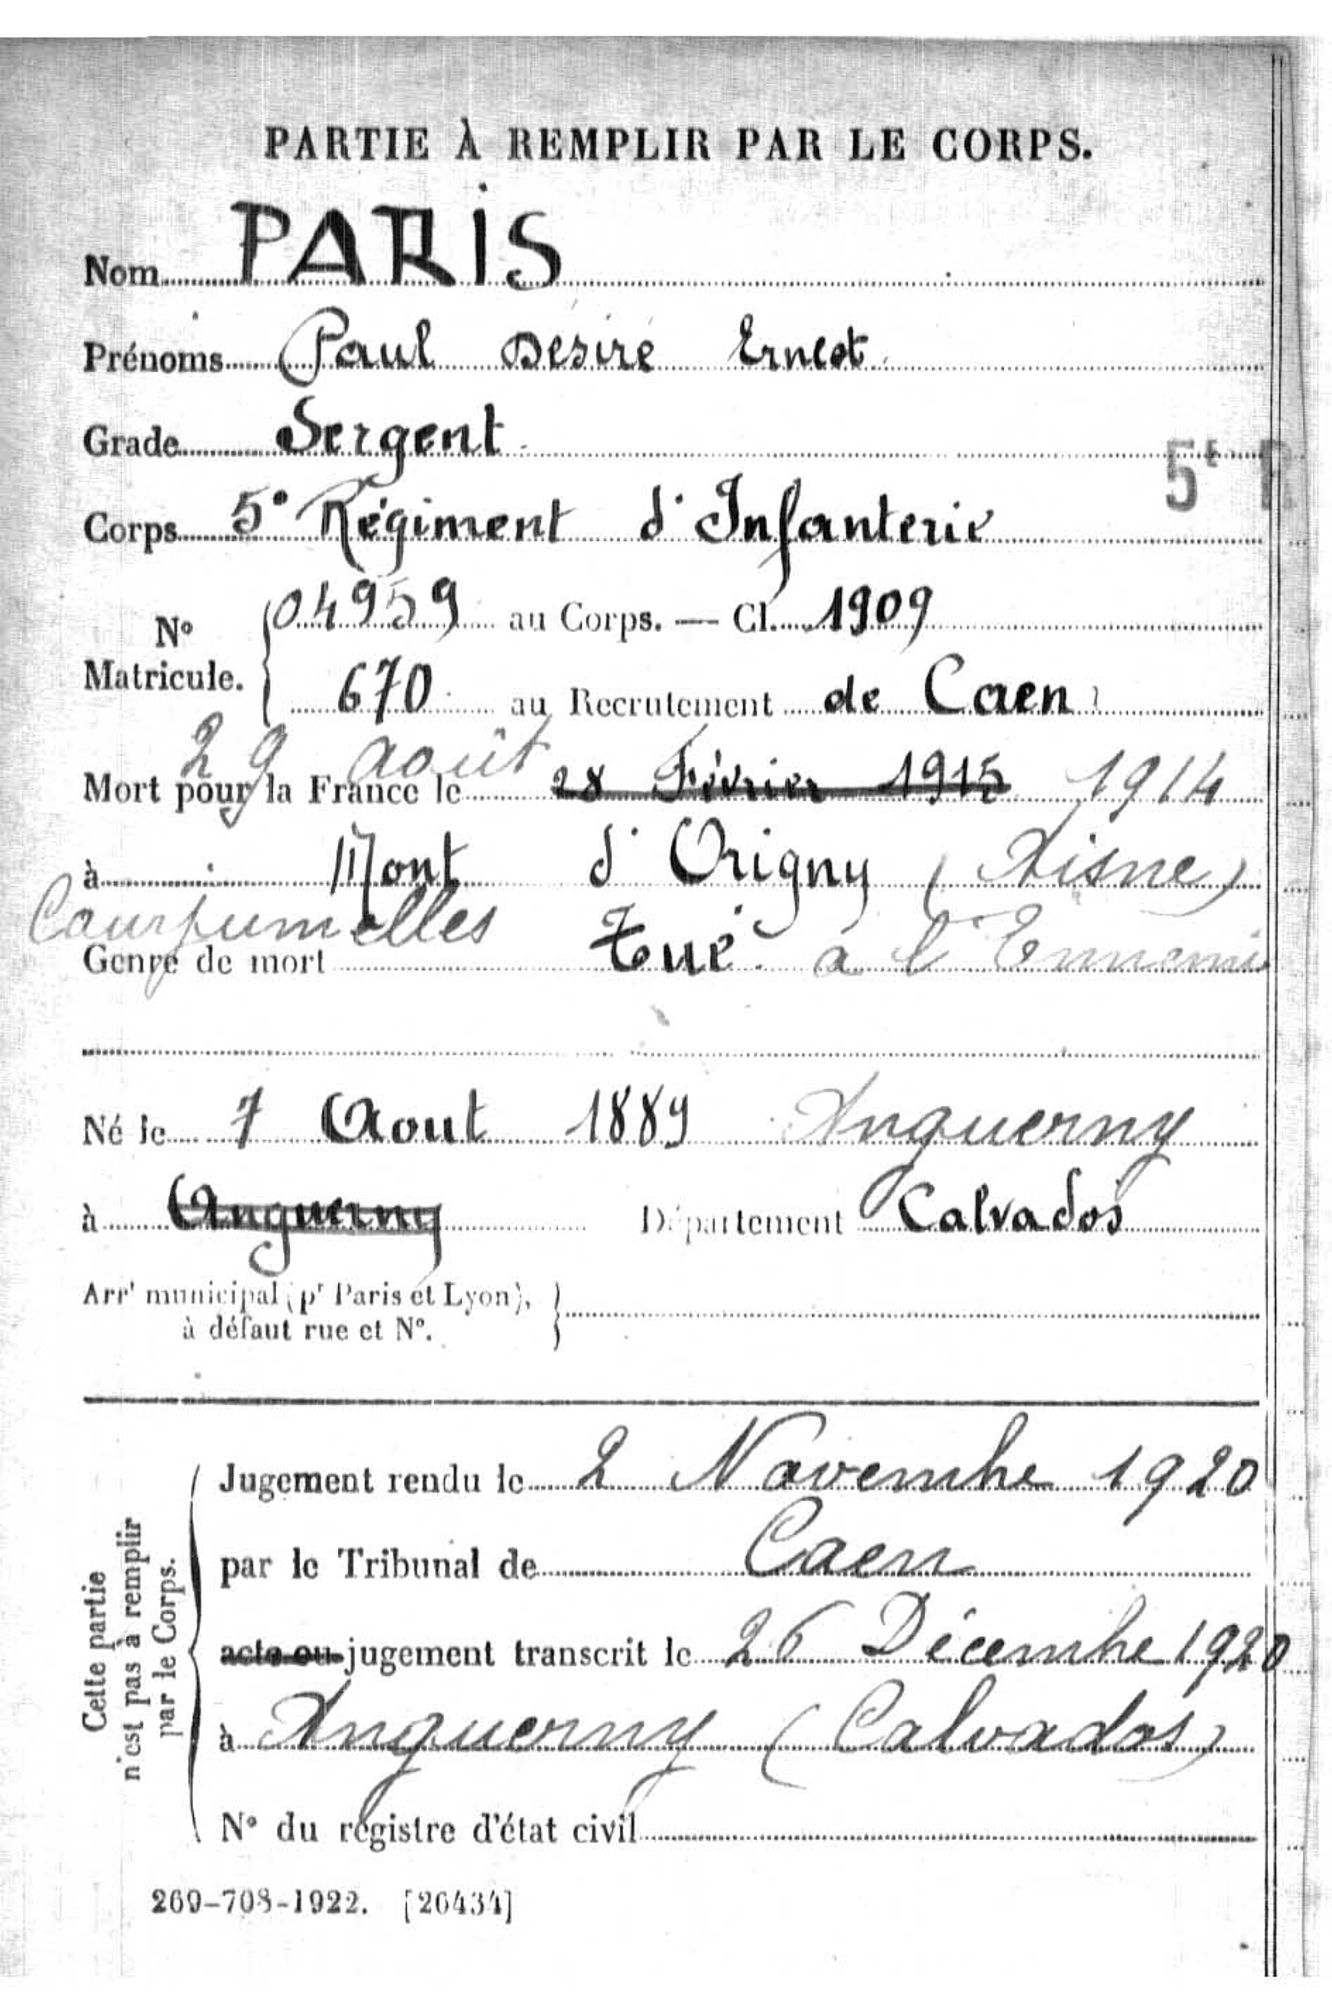 PARTIE À REMPLIR PAR LE CORPS.
Nom PARIS
Prénoms Paul Désiré Ernest
Grade Sergent
5e R
Corps 5e Régiment d'Infanterie
No Matricule. 04959 au Corps. — Cl. 1909
670 au Recrutement de Caen
29 août
Mort pour la France le 28 Février 1915 1914
à Mont d'Origny (Aisne)
Courjumelles
Genre de mort Tué à l'Ennemi
Né le 7 Aout 1889 Anguerny
à Anguerny Département Calvados
Arrt municipal (pr Paris et Lyon),
à défaut rue et No.
Cette partie
n'est pas à remplir
par le Corps.
Jugement rendu le 2 Novembre 1920
par le Tribunal de Caen
acte ou jugement transcrit le 26 Décembre 1920
à Anguerny (Calvados)
No du registre d'état civil
269-708-1922. [26434]